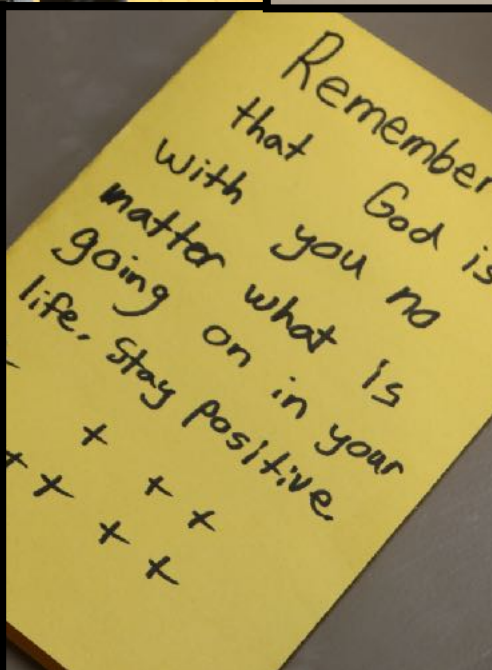 Remember
that God is
with you no
matter what is
going on in your
life. Stay positive.